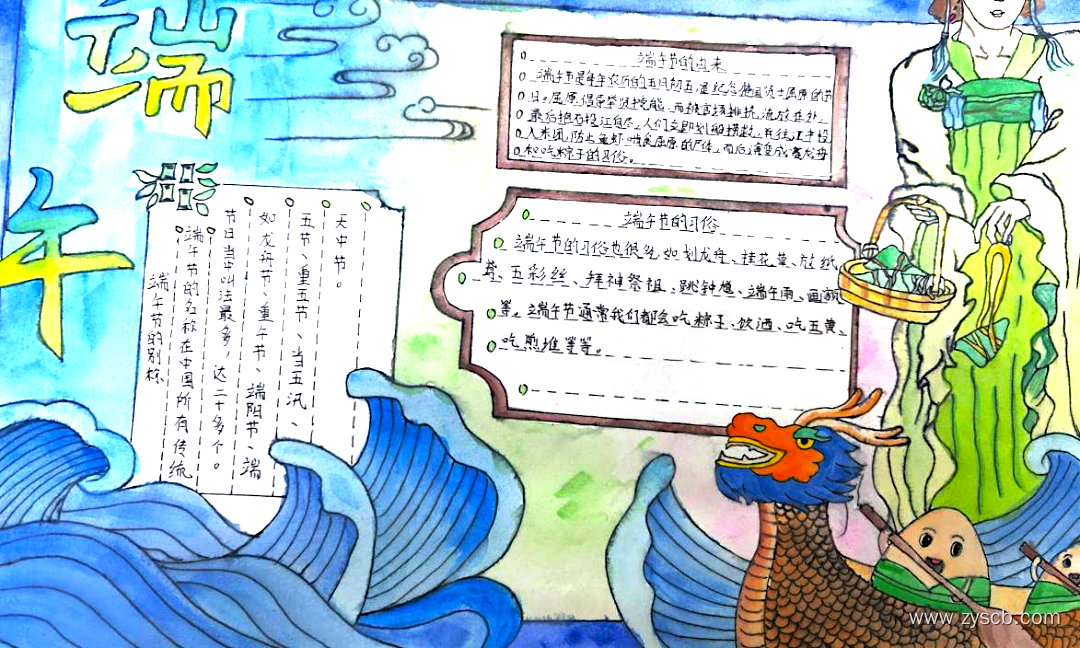 端
午
端午节的由来
端午节是每年农历的五月初五,是纪念 屈原的节
日。屈原倡导举贤授能,而被官场排挤,流放在外,
最后抱石投江自尽,人们立即划船捞救,并往江中投
入米团,防止鱼虾啃食屈原的尸体,而后演变成赛龙舟
和吃粽子的习俗。
端午节的习俗
端午节的习俗也很多,如划龙舟、挂花黄、放纸
鸢、五彩丝、拜神祭祖、跳钟馗、端午雨、画额
等。端午节通常我们都会吃粽子、饮酒、吃五黄、
吃煎堆等等。
端午节的别称
端午节的名称在中国所有传统
节日当中叫法最多,达二十多个。
如龙舟节、重午节、端阳节、端
五节、重五节、当五汛、
天中节。
www.zyscb.com